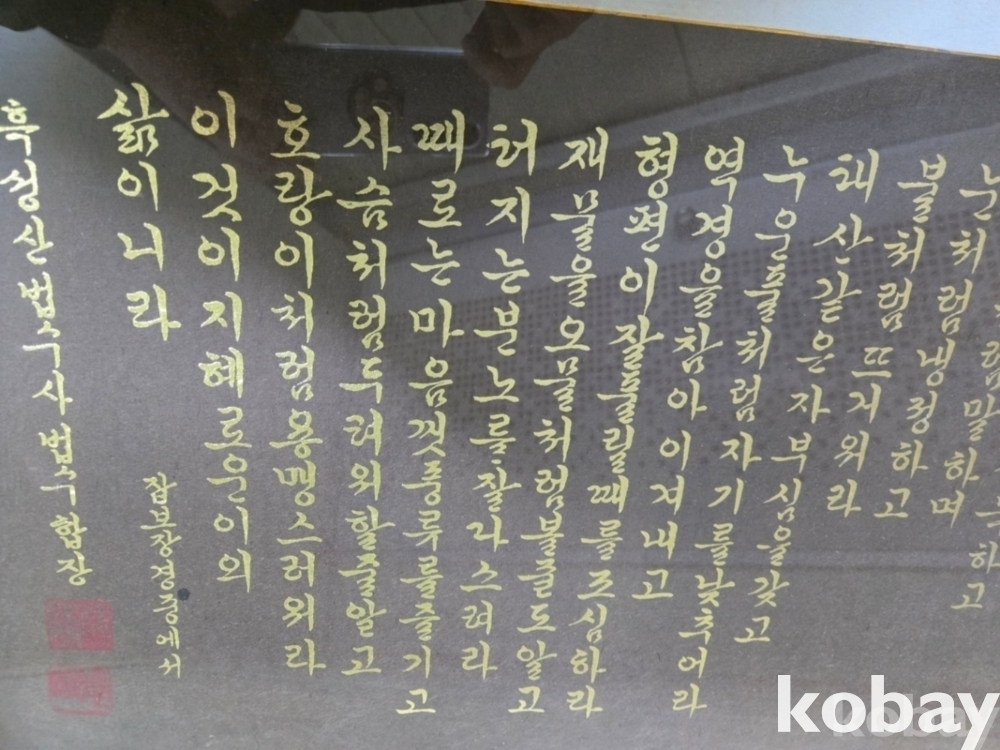 하고
럼말하며
눈처럼냉정하고
불처럼뜨거워라
태산같은자부심을갖고
누운풀처럼자기를낮추어라
역경을참아이겨내고
형편이잘풀릴때를조심하라
재물을오물처럼볼줄도알고
터지는분노를잘다스려라
때로는마음껏풍류를즐기고
사슴처럼두려워할줄알고
호랑이처럼용맹스러워라
이것이지혜로운이의
삶이니라
잡보장경중에서
흑성산법수사 법수합장
kobay